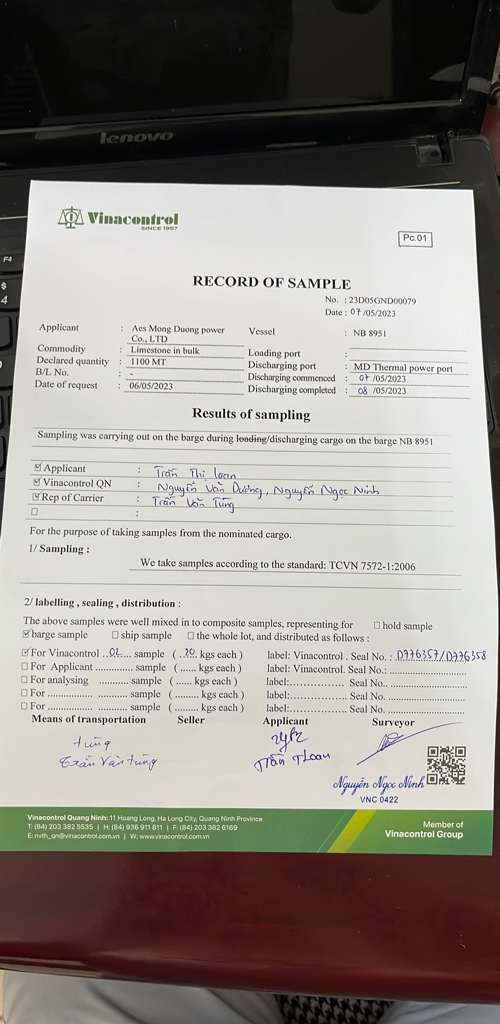 lenovo
F4
$
4
Vinacontrol
SINCE 1957
Pc.01
RECORD OF SAMPLE
No. : 23D05GND00079
Date : 07/05/2023
Applicant : Aes Mong Duong power Co., LTD
Vessel : NB 8951
Commodity : Limestone in bulk
Loading port :
Declared quantity : 1100 MT
Discharging port : MD Thermal power port
B/L No. : -
Discharging commenced : 07/05/2023
Date of request : 06/05/2023
Discharging completed : 08/05/2023
Results of sampling
Sampling was carrying out on the barge during loading/discharging cargo on the barge NB 8951
☑ Applicant : Trần Thị Loan
☑ Vinacontrol QN : Nguyễn Văn Dưỡng, Nguyễn Ngọc Ninh
☑ Rep of Carrier : Trần Văn Tùng
☐ :
For the purpose of taking samples from the nominated cargo.
1/ Sampling :
We take samples according to the standard: TCVN 7572-1:2006
2/ labelling , sealing , distribution :
The above samples were well mixed in to composite samples, representing for ☐ hold sample
☑ barge sample ☐ ship sample ☐ the whole lot, and distributed as follows :
☑ For Vinacontrol ..02.... sample (..20. kgs each ) label: Vinacontrol . Seal No. : D776357/D776358
☐ For Applicant ............ sample ( ...... kgs each ) label: Vinacontrol. Seal No.: ........................
☐ For analysing .......... sample ( ...... kgs each ) label:............... Seal No.. ........................
☐ For ............... .......... sample ( ........ kgs each ) label:............... Seal No. ........................
☐ For ............... .......... sample ( ........ kgs each ) label:............... Seal No. ........................
Means of transportation Seller Applicant Surveyor
tùng
Trần Văn Tùng
Trần T Loan
Nguyễn Ngọc Ninh
VNC 0422
Vinacontrol Quang Ninh: 11 Hoang Long, Ha Long City, Quang Ninh Province
T: (84) 203 382 5535 | H: (84) 936 911 811 | F: (84) 203 382 6169
E: nvth_qn@vinacontrol.com.vn | W: www.vinacontrol.com.vn
Member of
Vinacontrol Group